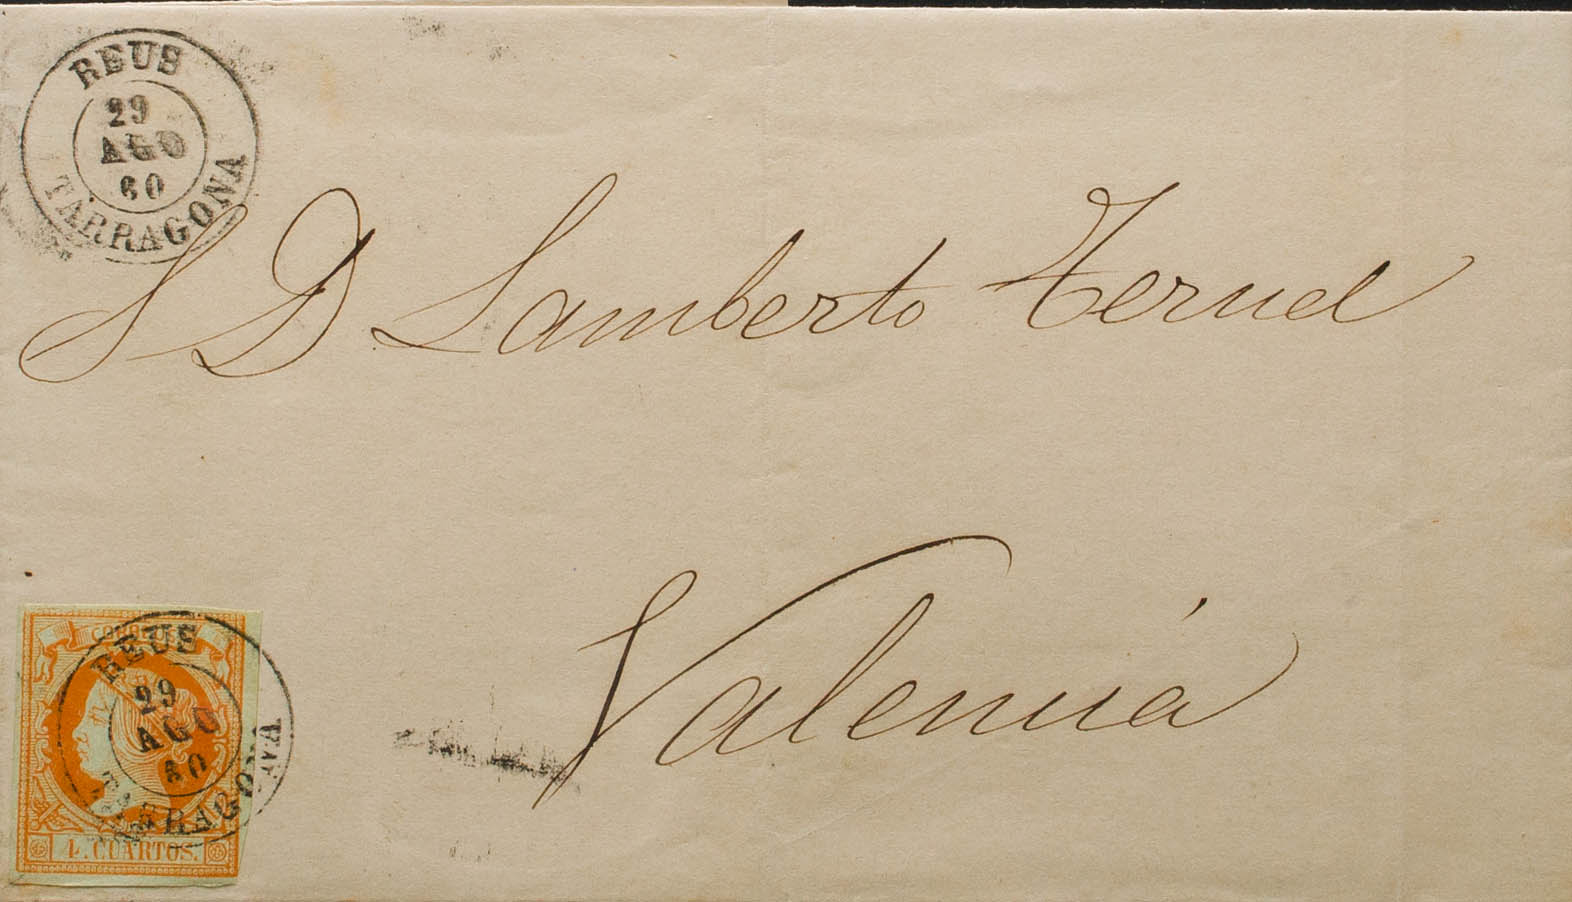 REUS
29
AGO
60
TARRAGONA
S D Lamberto Teruel
Valencia
CORREOS
REUS
29
AGO
60
TARRAGONA
4. CUARTOS.